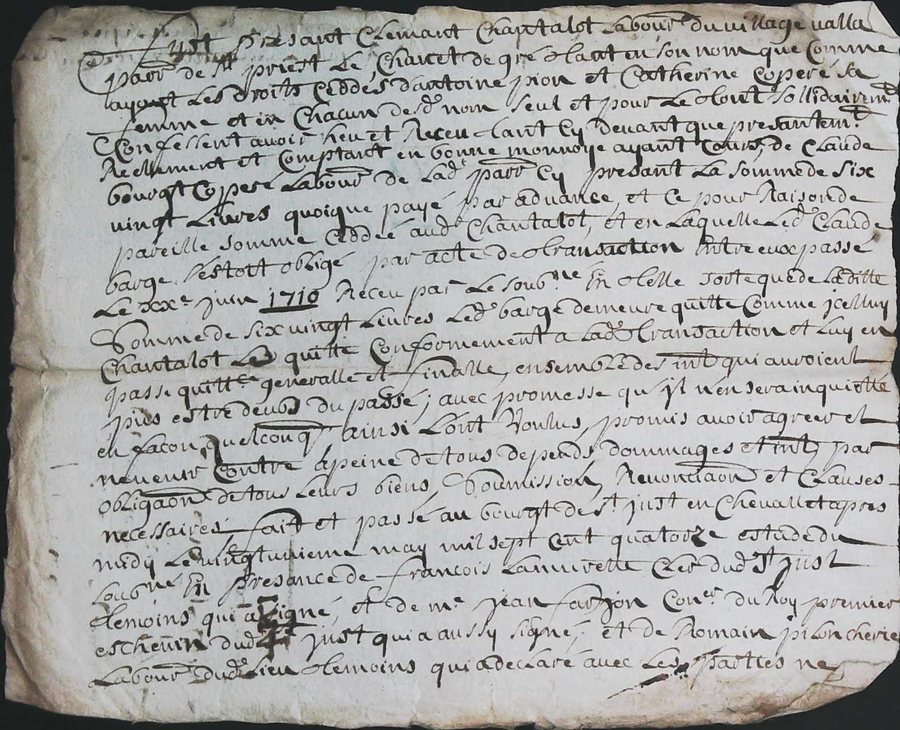 Fust presant Clemant Chantalot labour du village valla
parr de St priest Le Charet de gré Etant en son nom que Comme
ayant Les droits Ceddés dantoine pion et Catherine Coperé sa
femme et en Chacun desd nom seul et pour Le tout sollidairemt
Confessent avoir heu et Receu Etant Cy devant que presantemt
Reellement et Comptant en bonne monnoye ayant Cours, de Claude
bourgt Copere Labour de lad parr Cy presant La somme de six
vingt Livres quoique payé par advance, et Ce pour Raison de
pareille somme Ceddée aud Chantalot, et en Laquelle Led Claude
barge s'estoit obligé par acte de transaction Entre eux passe
Le xxe Juin 1710 Receu par Le soubne En telle sorte que de Laditte
Somme de six vingt Livres Led barge demeure quitte Comme jcelluy
Chantalot Len quitte Conformement a Lad transaction et Luy en
passe quitte generalle et finalle, ensemble des int qui auroient
peus estre deubs du passé, avec promesse qu'jl n'en sera inquiette
en façon quelconq, ainsi L'ont Voulus, promis avoir agreer et
ne venir Contre a peine de tous depends dommages et int par
obligaon de tous leurs biens, Soumission, Renonciaon et Clauses
necessaires, fait et passé au bourgt de St just en Chevallet apres
midy Le vingtunieme may mil sept Cent quatorze estude du
sousne En presance de françois Lamurette Clerc dud St just
temoins qui a signé, et de me jean farjon Coner du Roy premier
eschevin dud St just qui a aussy signé, et de Romain pilonchérie
Labour dud Lieu temoins qui a declaré avec Les parties ne